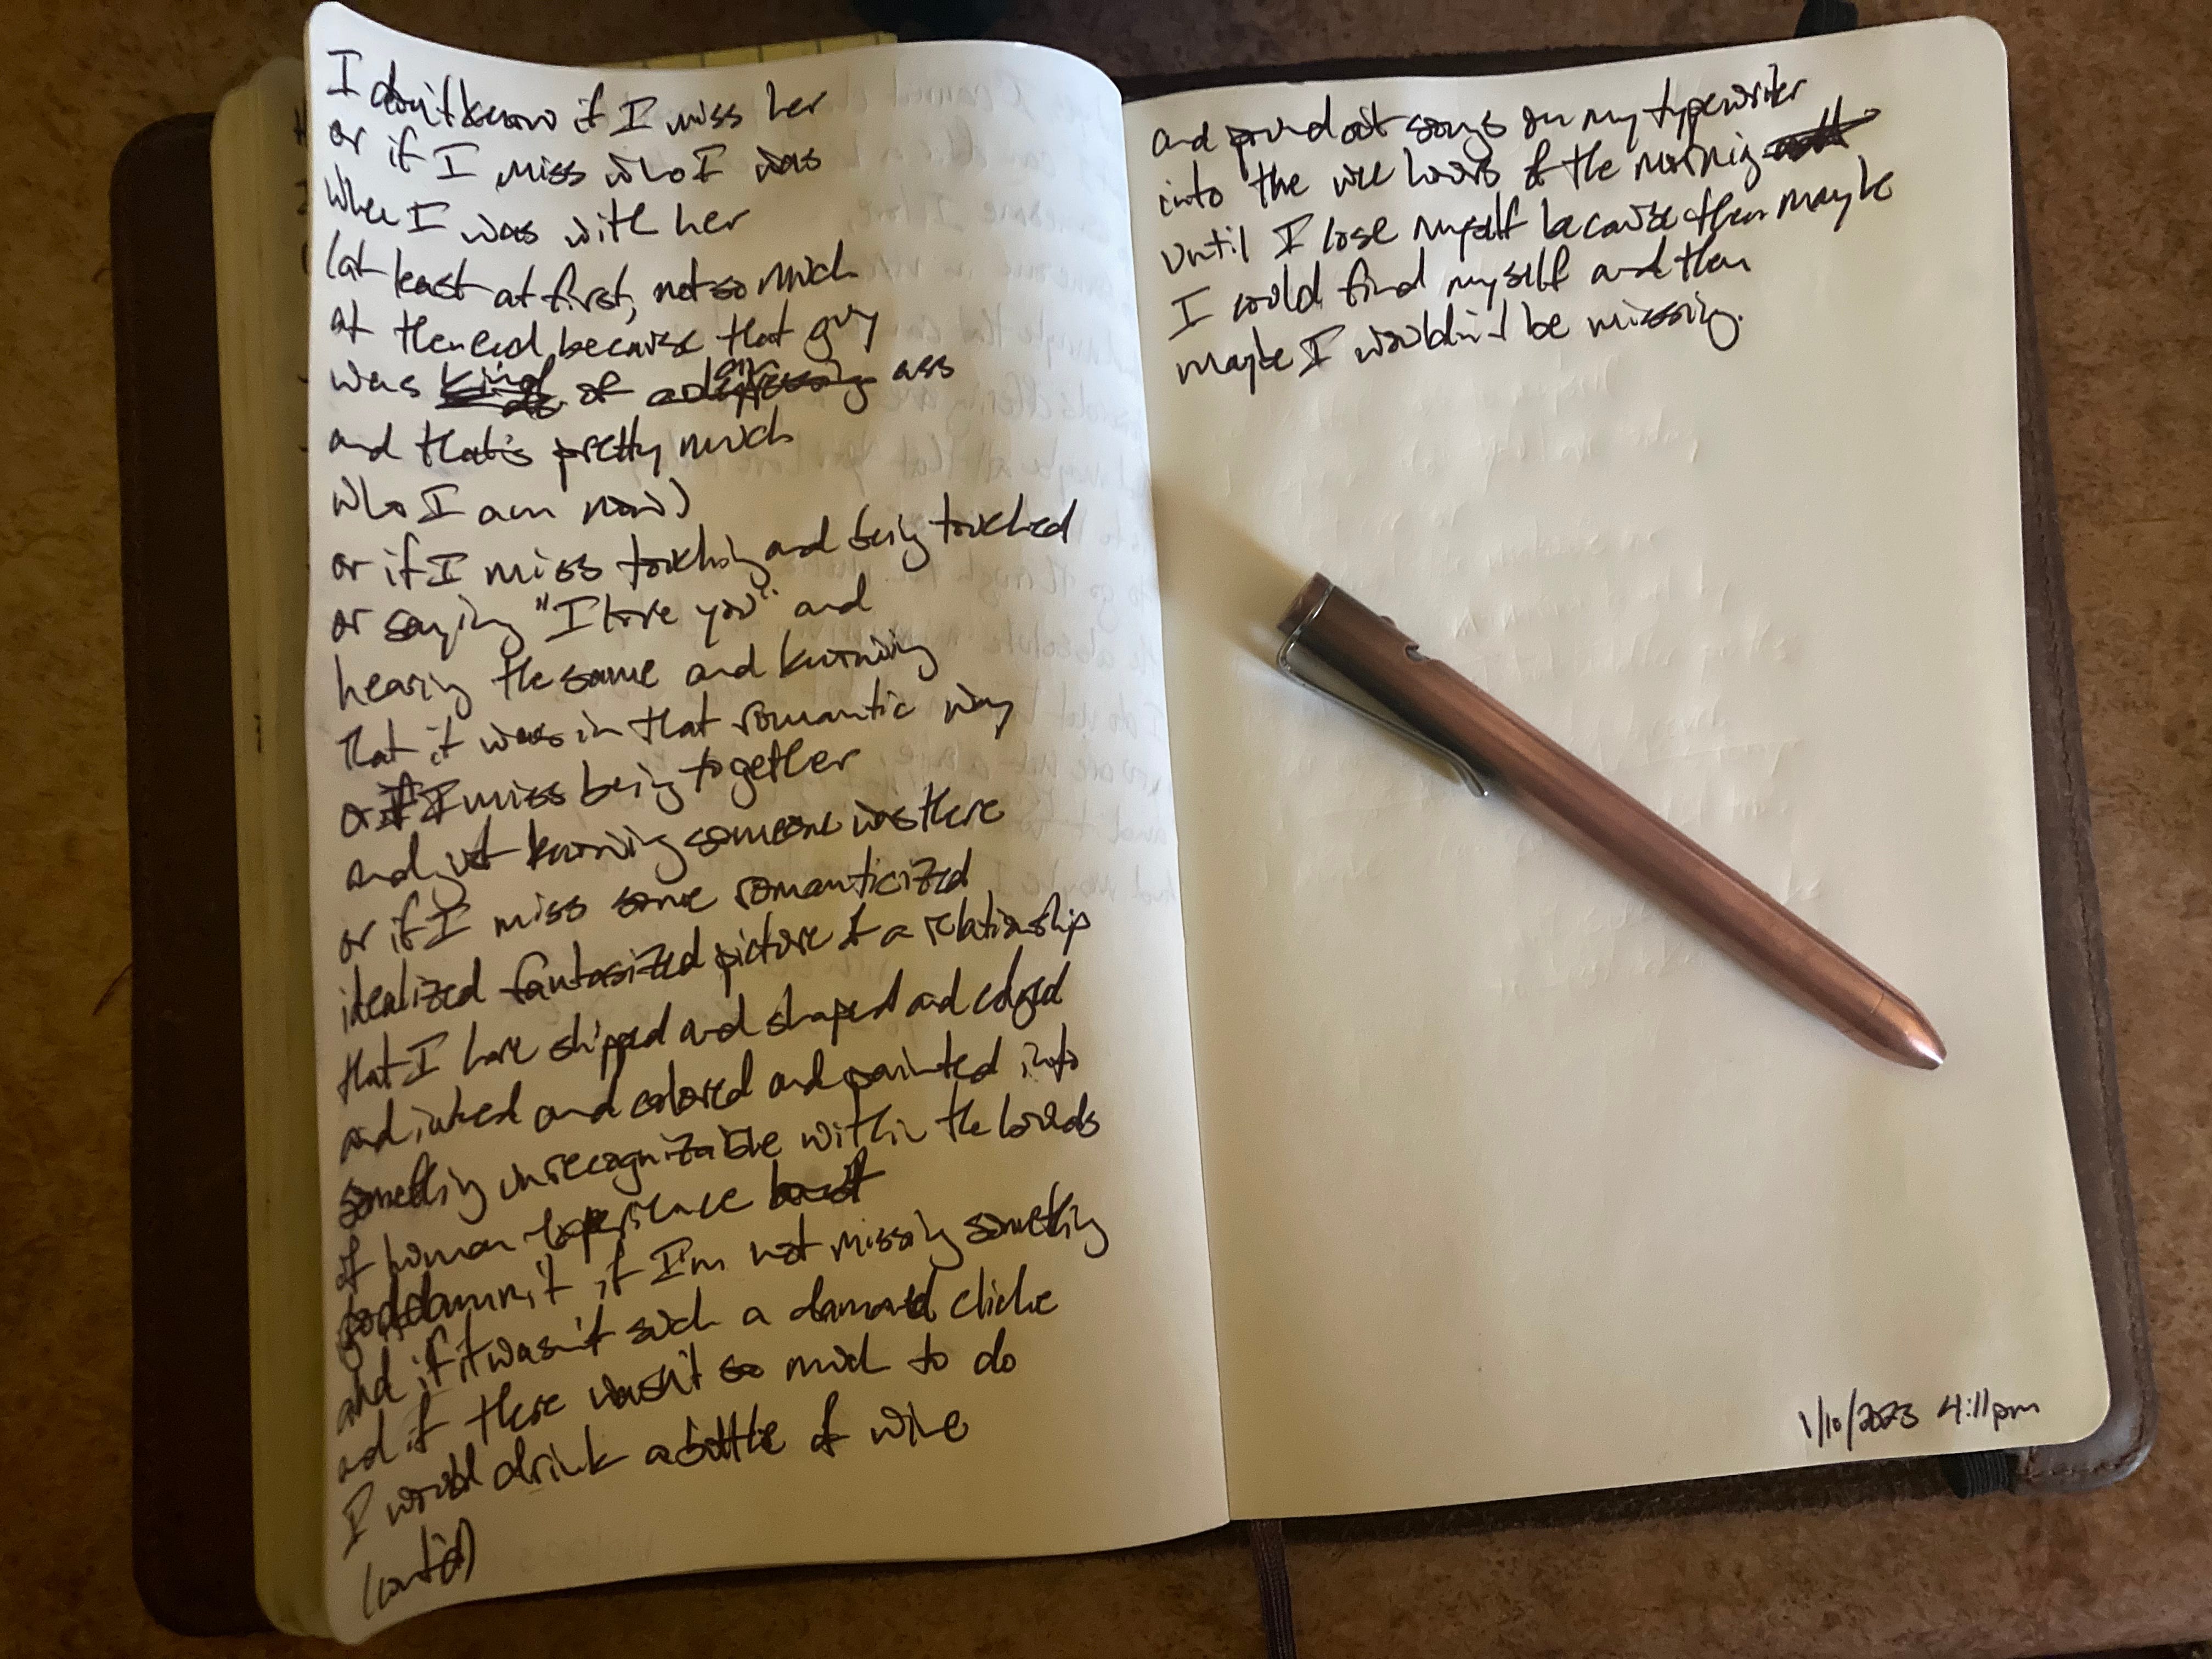 I don't know if I miss her
or if I miss who I was
when I was with her
(at least at first, not so much
at the end because that guy
was kind of a depressing ass
and that's pretty much
who I am now)
or if I miss touching and being touched
or saying "I love you" and
hearing the same and knowing
that it was in that romantic way
or if I miss being together
and yet knowing someone was there
or if I miss some romanticized
idealized fantasized picture of a relationship
that I have shipped and shaped and edged
and inked and colored and painted into
something unrecognizable within the bounds
of human experience but
goddamnit if I'm not missing something
and if it wasn't such a damned cliche
and if there wasn't so much to do
I would drink a bottle of wine
(cont'd)
and pound out songs on my typewriter
into the wee hours of the morning
until I lose myself because then maybe
I could find myself and then
maybe I wouldn't be missing.
1/10/2023 4:11pm